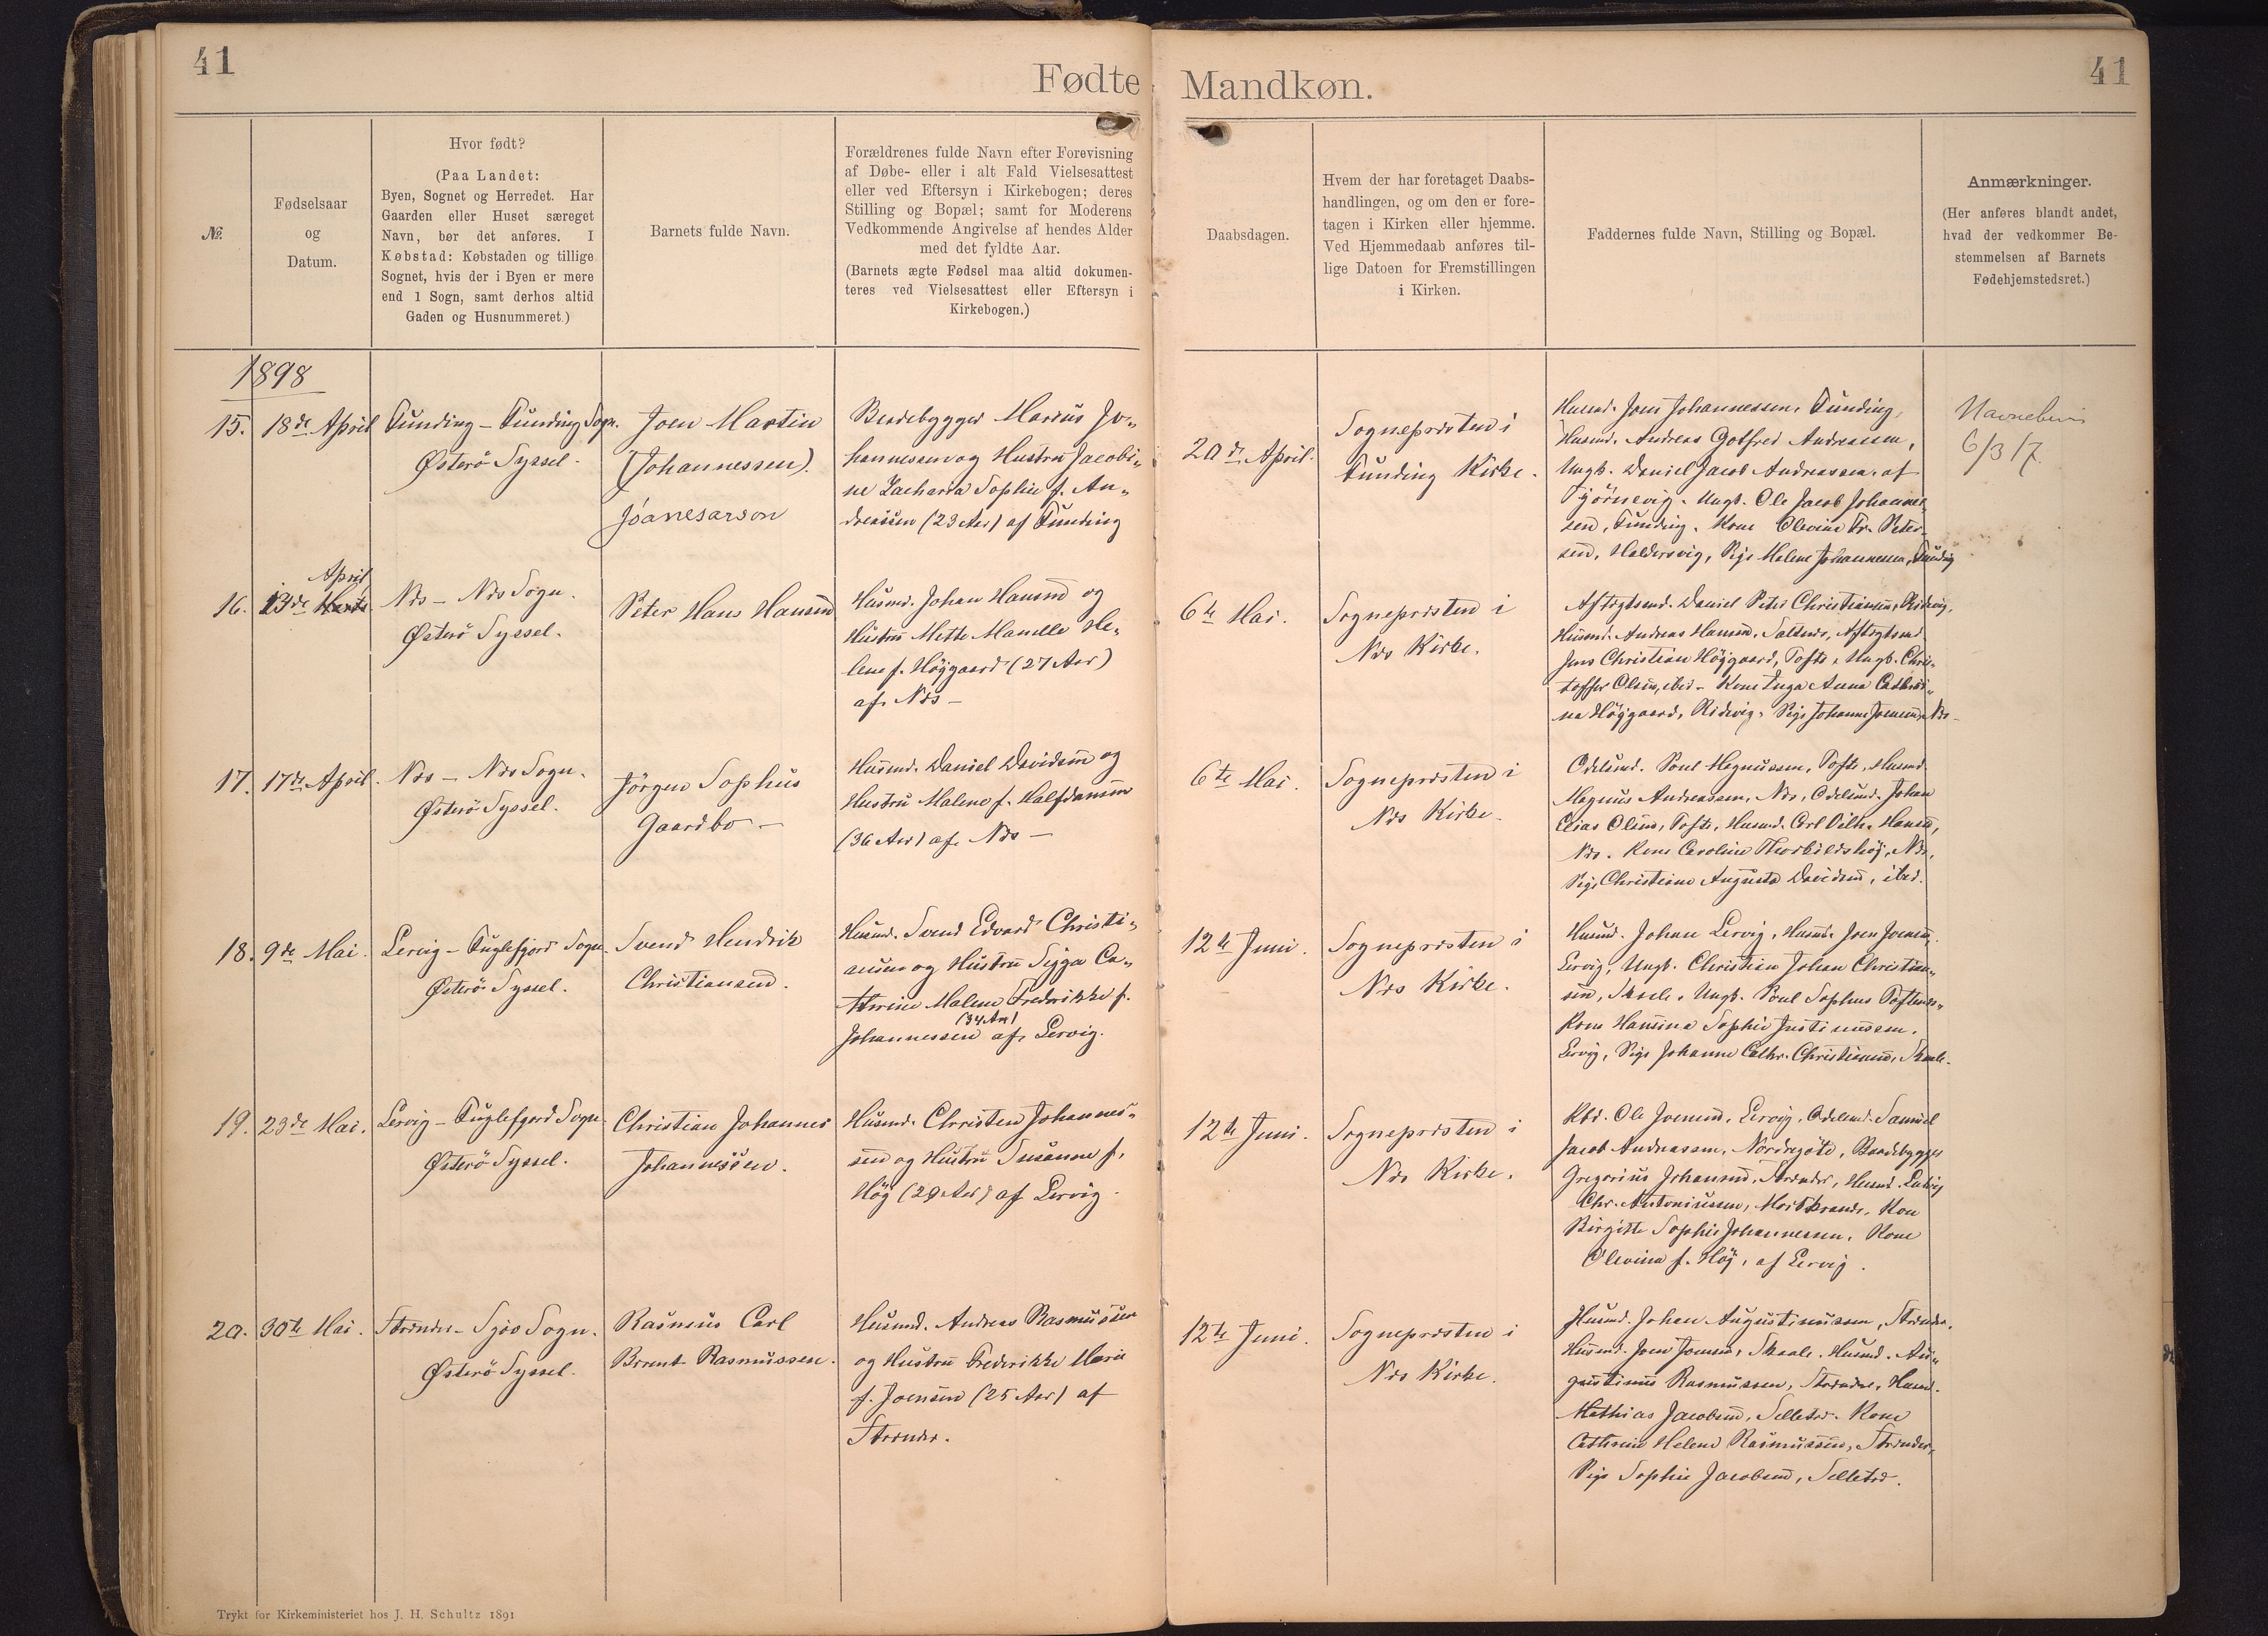 41
Fødte
Mandkøn.
41
№
Fødselsaar
og
Datum.
Hvor født?
(Paa Landet:
Byen, Sognet og Herredet. Har
Gaarden eller Huset særeget
Navn, bør det anføres. I
Købstad: Købstaden og tillige
Sognet, hvis der i Byen er mere
end 1 Sogn, samt derhos altid
Gaden og Husnummeret.)
Barnets fulde Navn.
Forældrenes fulde Navn efter Forevisning
af Døbe- eller i alt Fald Vielsesattest
eller ved Eftersyn i Kirkebogen; deres
Stilling og Bopæl; samt for Moderens
Vedkommende Angivelse af hendes Alder
med det fyldte Aar.
(Barnets ægte Fødsel maa altid dokumen-
teres ved Vielsesattest eller Eftersyn i
Kirkebogen.)
Daabsdagen.
Hvem der har foretaget Daabs-
handlingen, og om den er fore-
tagen i Kirken eller hjemme.
Ved Hjemmedaab anføres til-
lige Datoen for Fremstillingen
i Kirken.
Faddernes fulde Navn, Stilling og Bopæl.
Anmærkninger.
(Her anføres blandt andet,
hvad der vedkommer Be-
stemmelsen af Barnets
Fødehjemstedsret.)
1898
15.
18de April
Funding - Funding Sogn.
Østerö Syssel.
Joen Martin
(Johannessen).
Jóanesarson
Baadebygger Marius Jo-
hannessen og Hustru Jacobi-
ne Zacharia Sophie f. An-
dreassen (23 Aar) af Funding
20de April.
Sognepræsten i
Funding Kirke.
Husmd. Joen Johannessen, Funding,
Husmd. Andreas Gotfred Andreassen,
Ungk. Daniel Jacob Andreassen af
Tjörnevig. Ungk. Ole Jacob Johannes-
sen, Funding. Kone Olevine Fr. Peter-
sen, Haldersvig, Pige Helene Johannessen, Funding
Navnebevis
6/3 17.
16.
April
13de Marts
Næs - Næs Sogn.
Østerö Syssel.
Peter Hans Hansen
Husmd. Johan Hansen og
Hustru Mette Manelle He-
lene f. Höjgaard (27 Aar)
af Næs -
6te Mai.
Sognepræsten i
Næs Kirke.
Aftægtsmd. Daniel Peter Christiansen, Ridevig,
Husmd. Andreas Hansen, Saltnæs, Aftægtsmd.
Jens Christian Höjgaard, Tofte, Ungk. Chri-
stoffer Olsen, ibid. - Kone Inga Anna Cathri-
na Höjgaard, Ridevig, Pige Johanne Joensen, Næs -
17.
17de April.
Næs - Næs Sogn.
Østerö Syssel.
Jörgen Sophus
Gaardbo -
Husmd. Daniel Davidsen og
Hustru Malene f. Halfdansen
(36 Aar) af Næs -
6te Mai.
Sognepræsten i
Næs Kirke.
Odelsmd. Poul Magnussen, Tofte, Husmd.
Magnus Andreassen, Næs, Odelsmd. Johan
Elias Olsen, Tofte, Husmd. Carl Vilh. Hansen,
Næs. Kone Caroline Thorkildshöj, Næs,
Pige Christiane Augusta Davidsen, ibid.
18.
9de Mai.
Lervig - Fuglefjord Sogn.
Østerö Syssel.
Svend Hendrik
Christiansen.
Husmd. Svend Edvard Christi-
ansen og Hustru Sigga Ca-
thrine Malene Frederikke f.
(34 Aar)
Johannessen af Lervig.
12te Juni.
Sognepræsten i
Næs Kirke.
Husmd. Johan Lervig, Husmd. Joen Joensen,
Lervig, Ungk. Christian Johan Christian-
sen, Skaale. Ungk. Poul Sophus
Kone Hansina Sophie Justinussen,
Lervig, Pige Johanne Cathr. Christiansen, Skaale.
19.
23de Mai.
Lervig - Fuglefjord Sogn.
Østerö Syssel.
Christian Johannes
Johannessen.
Husmd. Christen Johannes-
sen og Hustru Susanne f.
Höj (29 Aar) af Lervig.
12te Juni.
Sognepræsten i
Næs Kirke.
Kbd. Ole Joensen, Lervig, Odelsmd. Samuel
Jacob Andreassen, Nordregöte, Baadebygger
Gregorius Johansen, Strænder, Husmd. Ludvig
Chr. Antoniussen, Kone
Birgitte Sophie Johannessen, Kone
Olevina f. Höj, af Lervig.
20.
30te Mai.
Strænder - Sjov Sogn.
Østerö Syssel.
Rasmus Carl
Berent Rasmussen.
Husmd. Andreas Rasmussen
og Hustru Frederikke Maria
f. Joensen (25 Aar) af
Strænder.
12te Juni.
Sognepræsten i
Næs Kirke.
Husmd. Johan Augustinussen, Strænder,
Husmd. Joen Joensen, Skaale. Husmd. Au-
gustinus Rasmussen, Strænder, Husmd.
Mathias Jacobsen, Selletræ. Kone
Cathrine Helene Rasmussen, Strænder,
Pige Sophie Jacobsen, Selletræ.
Trykt for Kirkeministeriet hos J. H. Schultz 1891